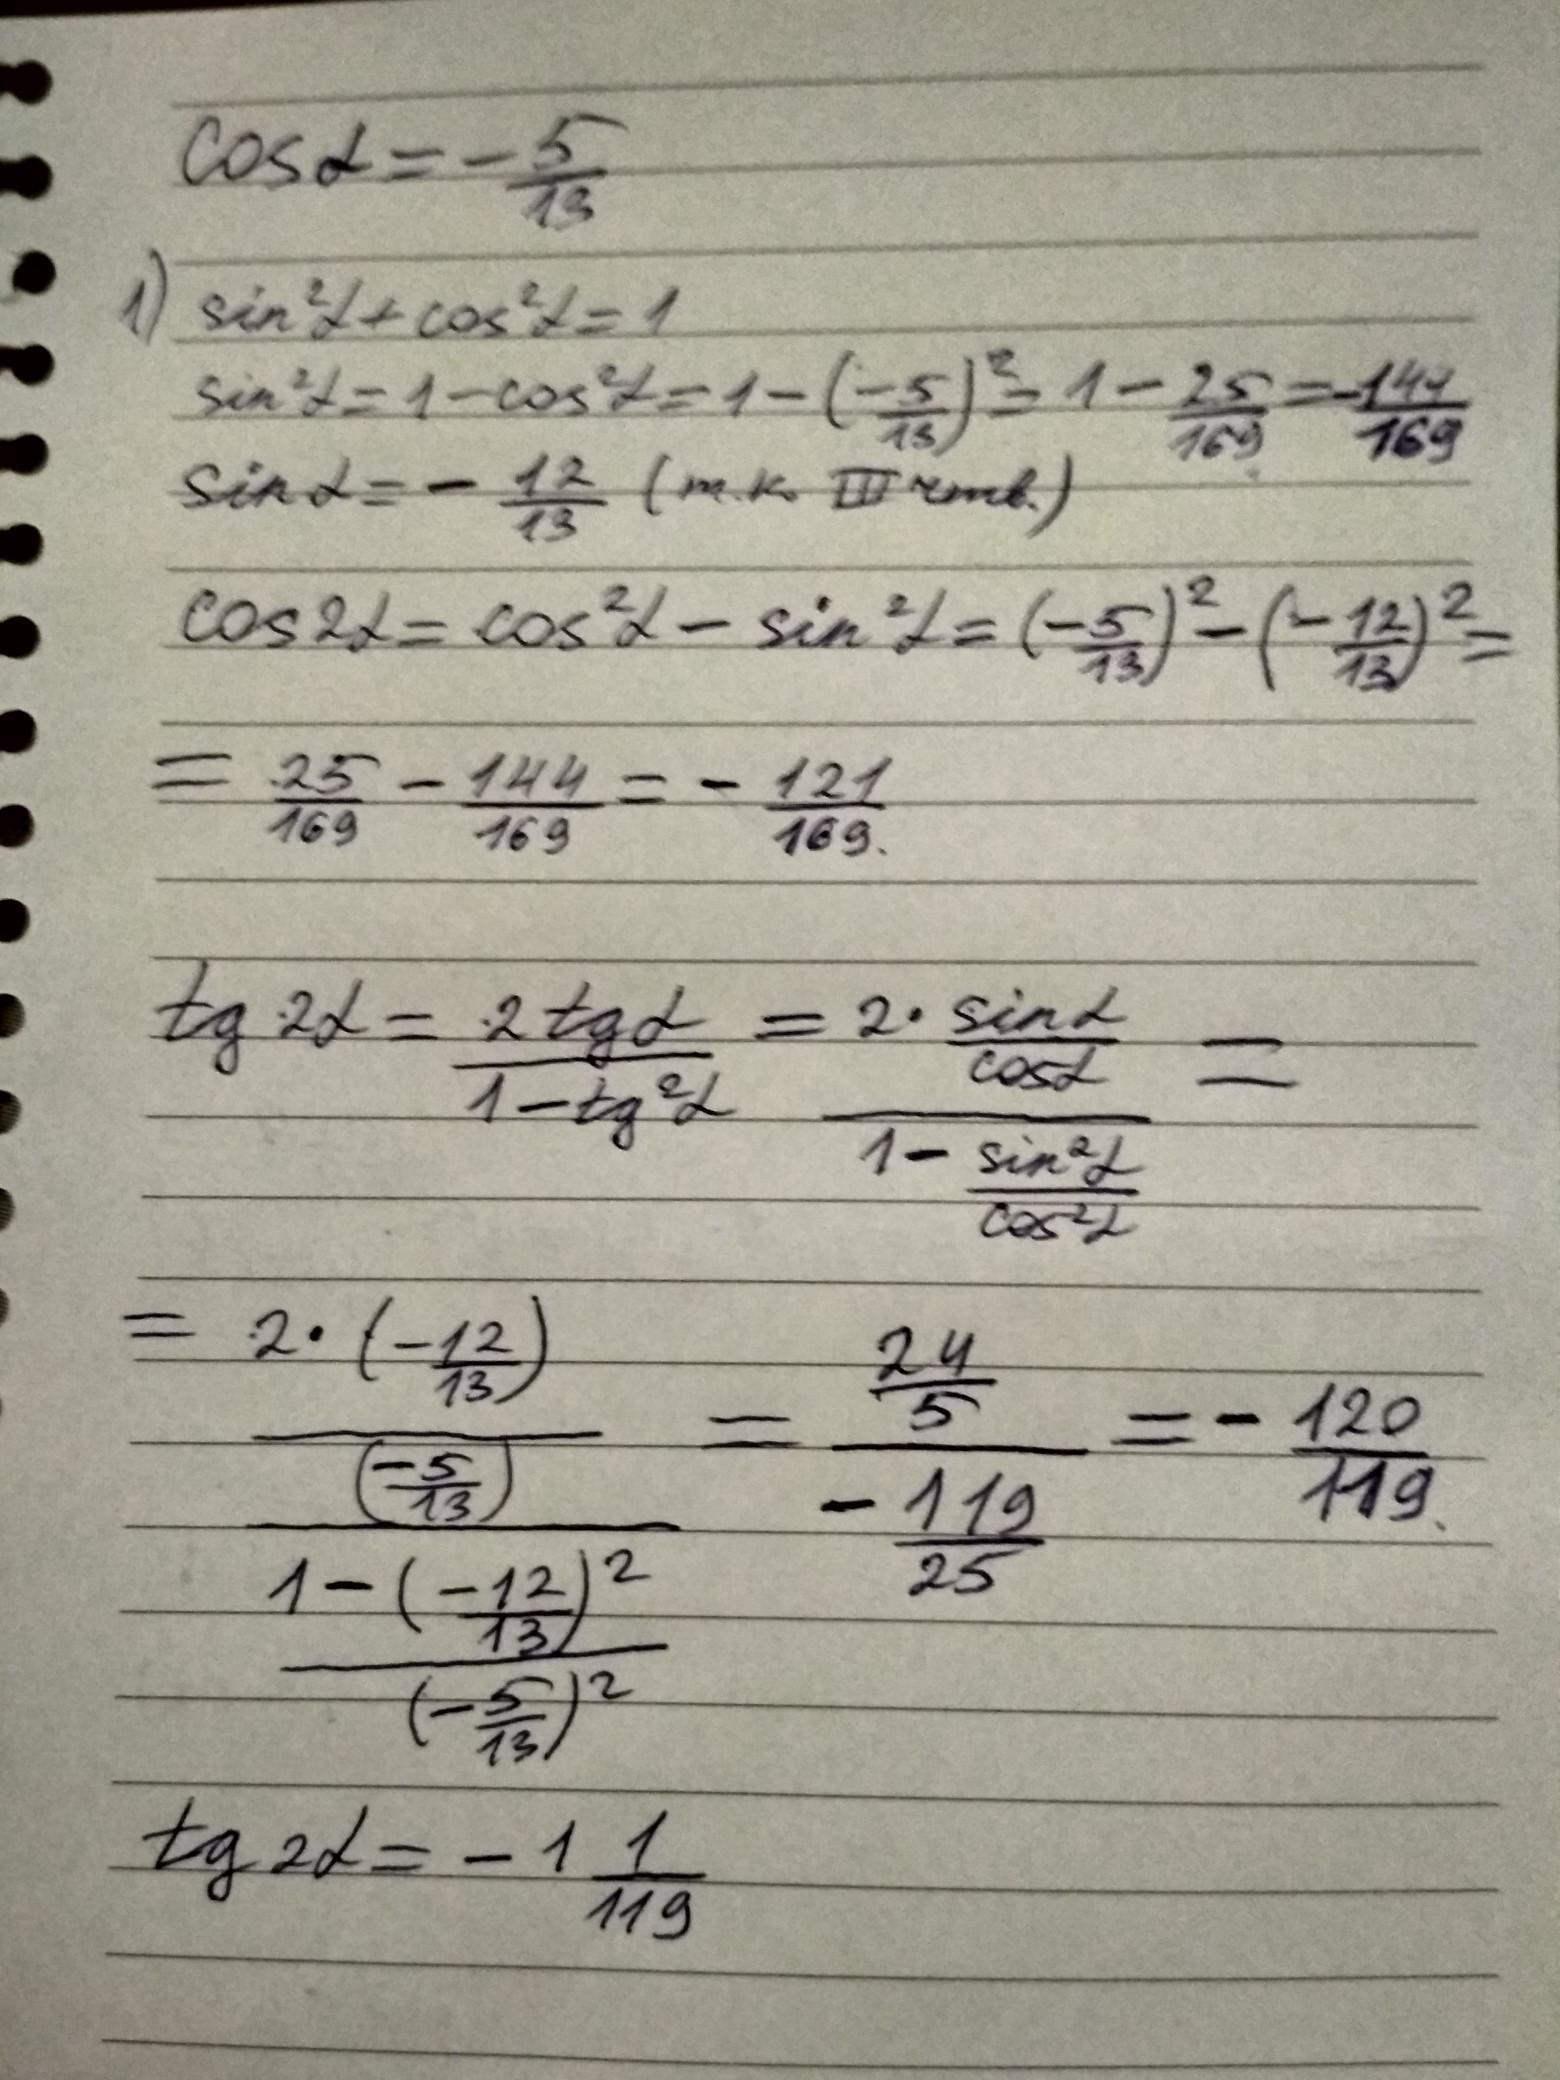 cosα = - 5/13
1) sin²α + cos²α = 1
sin²α = 1 - cos²α = 1 - (-5/13)² = 1 - 25/169 = -144/169
sinα = - 12/13 (т.к. III четв.)
cos2α = cos²α - sin²α = (-5/13)² - (-12/13)² =
= 25/169 - 144/169 = - 121/169.
tg 2α = 2tgα / (1 - tg²α) = (2 · sinα/cosα) / (1 - sin²α/cos²α) =
= (2 · (-12/13) / (-5/13)) / (1 - (-12/13)² / (-5/13)²) = (24/5) / (-119/25) = - 120/119.
tg 2α = - 1 1/119